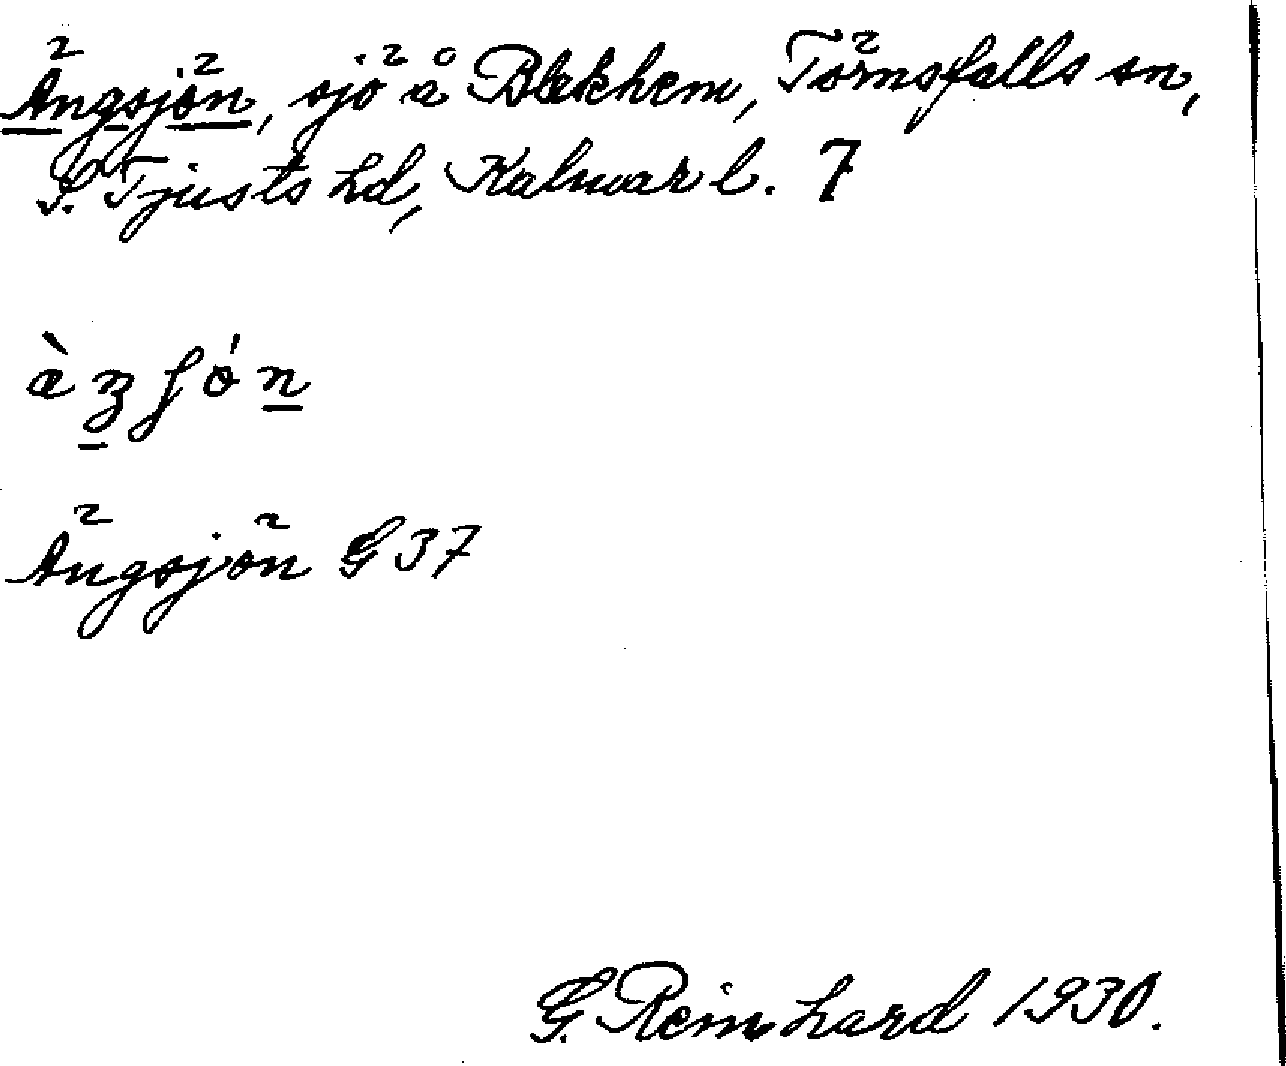 Ängsjön, sjö å Blekhem, Törnsfalls sn,
S. Tjusts hd, Kalmar l. 7
Ängsjön G 37
G. Reinhard 1930.